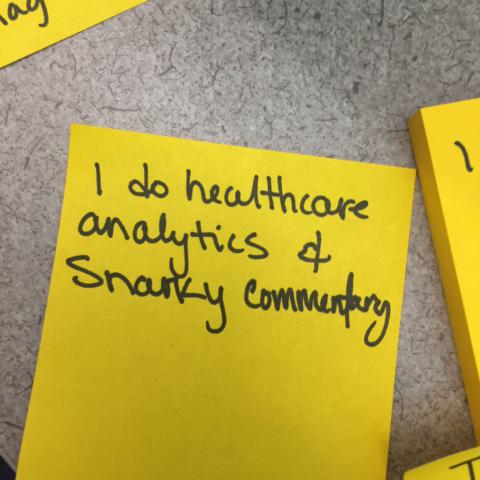 I do healthcare
analytics &
Snarky commentary
I